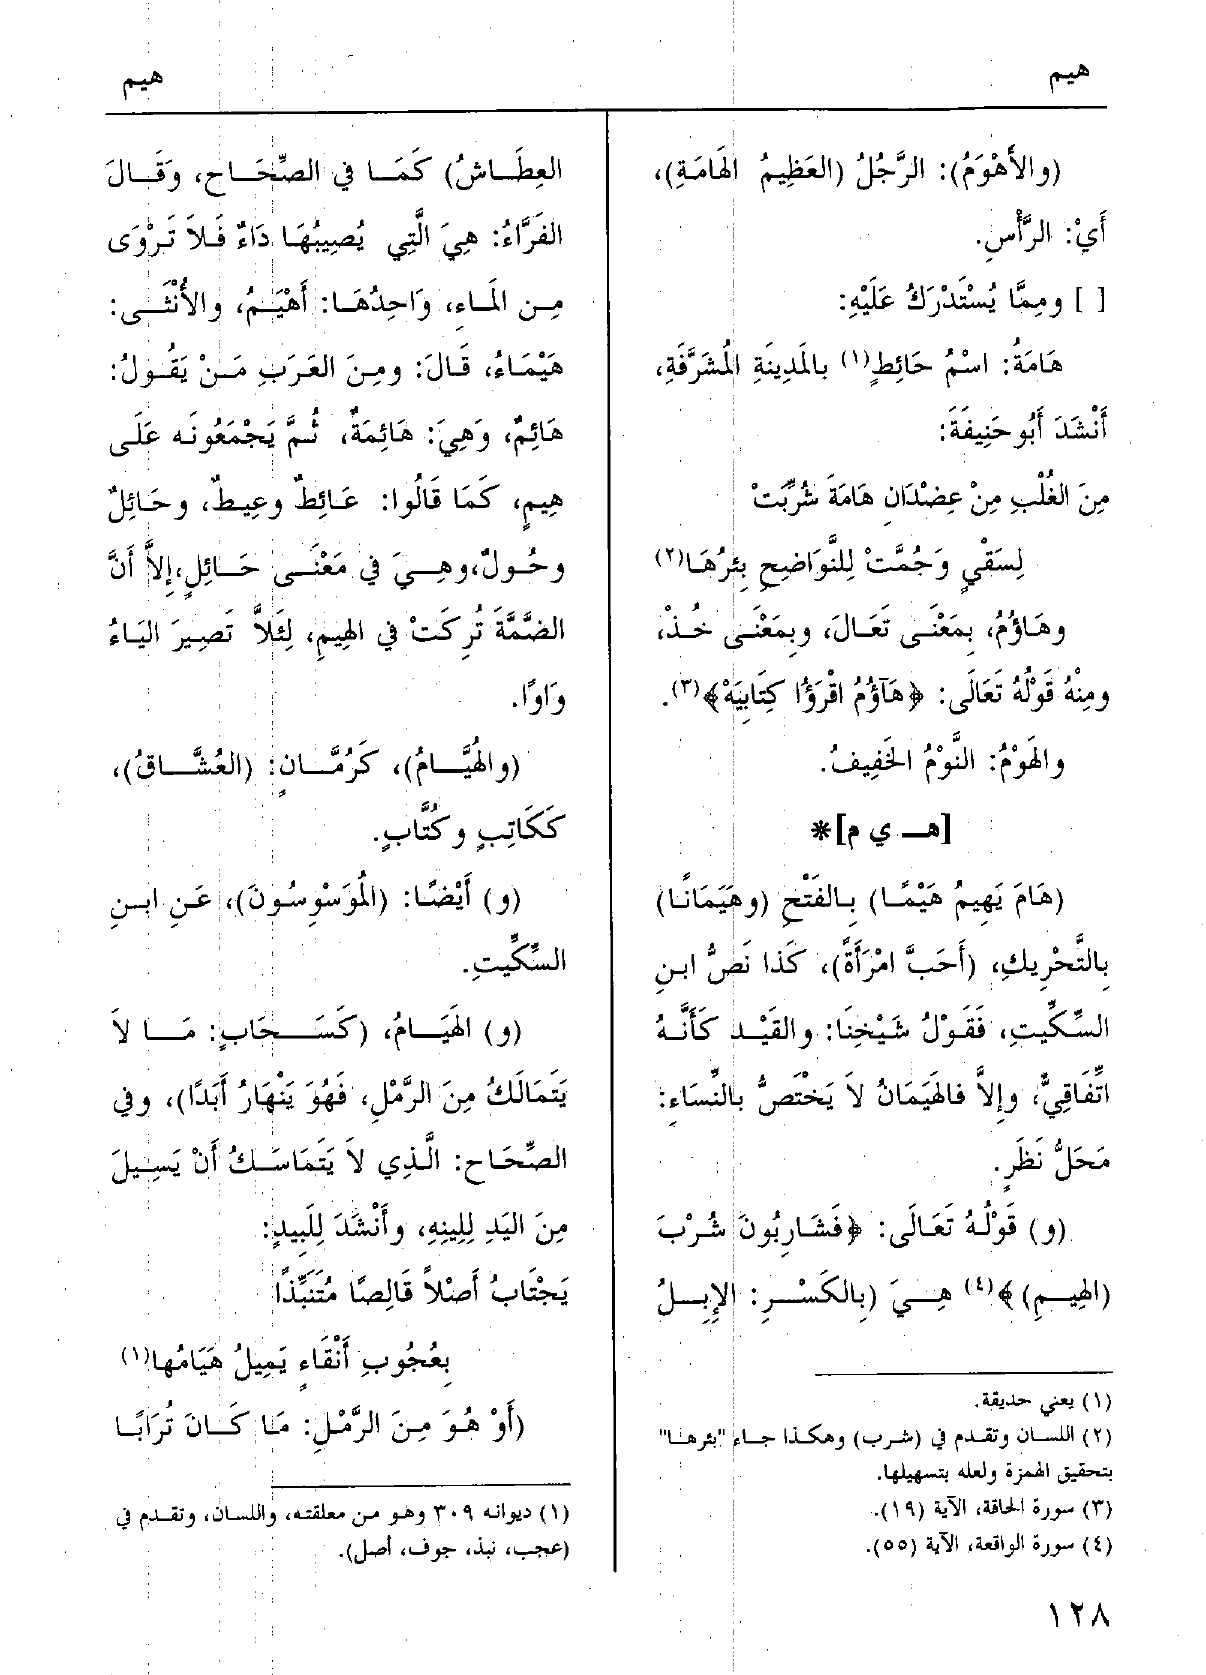 هيم
هيم
(والأَهْوَمُ): الرَّجُلُ (العَظِيمُ الهَامَةِ)،
أَيْ: الرَّأْسِ.
[ ] ومِمَّا يُسْتَدْرَكُ عَلَيْهِ:
هَامَةُ: اسْمُ حَائِطٍ(١) بالمَدِينَةِ المُشَرَّفَةِ،
أَنْشَدَ أَبُو حَنِيفَةَ:
مِنَ الغُلْبِ مِنْ عِضْدَانِ هَامَةَ شُرِّبَتْ
لِسَقْيٍ وَجُمَّتْ لِلنَّوَاضِحِ بِئرُهَا(٢)
وهَاؤُمُ، بِمَعْنَى تَعَالَ، وبِمَعْنَى خُذْ،
ومِنْهُ قَوْلُهُ تَعَالَى: ﴿هَآؤُمُ اقْرَؤُا كِتَابِيَهْ﴾(٣).
والهَوْمُ: النَّوْمُ الخَفِيفُ.
[هـ ي م]*
(هَامَ يَهِيمُ هَيْمًا) بِالفَتْحِ (وهَيَمَانًا)
بِالتَّحْرِيكِ، (أَحَبَّ امْرَأَةً)، كَذا نَصُّ ابنِ
السِّكِّيتِ، فَقَوْلُ شَيْخِنَا: والقَيْد كَأَنَّهُ
اتِّفَاقِيٌّ، وإِلاَّ فالهَيَمَانُ لاَ يَخْتَصُّ بالنِّسَاءِ:
مَحَلُّ نَظَرٍ.
(و) قَوْلُهُ تَعَالَى: ﴿فَشَارِبُونَ شُرْبَ
(الهِيمِ)﴾(٤) هِيَ (بِالكَسْرِ: الإِبِلُ
(١) يعني حديقة.
(٢) اللسان وتقدم في (شرب) وهكذا جاء "بئرها"
بتحقيق الهمزة ولعله بتسهيلها.
(٣) سورة الحاقة، الآية (١٩).
(٤) سورة الواقعة، الآية (٥٥).
العِطَاشُ) كَمَا في الصِّحَاحِ، وَقَالَ
الفَرَّاءُ: هِيَ الَّتِي يُصِيبُهَا دَاءٌ فَلاَ تَرْوَى
مِن المَاءِ، وَاحِدُهَا: أَهْيَمُ، والأُنْثَى:
هَيْمَاءُ، قَالَ: ومِنَ العَرَبِ مَنْ يَقُولُ:
هَائِمٌ، وَهِيَ: هَائِمَةٌ، ثُمَّ يَجْمَعُونَه عَلَى
هِيمٍ، كَمَا قَالُوا: عَائِطٌ وعِيطٌ، وحَائِلٌ
وحُولٌ،وهِيَ في مَعْنَى حَائِلٍ،إِلاَّ أَنَّ
الضَّمَّةَ تُرِكَتْ في الهِيمِ، لِئَلاَّ تَصِيرَ اليَاءُ
وَاوًا.
(والهُيَّامُ)، كَرُمَّانٍ: (العُشَّاقُ)،
كَكَاتِبٍ وكُتَّابٍ.
(و) أَيْضًا: (المُوَسْوِسُونَ)، عَنِ ابنِ
السِّكِّيتِ.
(و) الهَيَامُ، (كَسَحَابٍ: مَا لاَ
يَتَمَالَكُ مِنَ الرَّمْلِ، فَهُوَ يَنْهَارُ أَبَدًا)، وفي
الصِّحَاحِ: الَّذِي لاَ يَتَمَاسَكُ أَنْ يَسِيلَ
مِنَ اليَدِ لِلِينِهِ، وأَنْشَدَ لِلَبِيدٍ:
يَجْتَابُ أَصْلاً قَالِصًا مُتَنَبِّذًا
بِعُجُوبِ أَنْقَاءٍ يَمِيلُ هَيَامُها(١)
(أَوْ هُوَ مِنَ الرَّمْلِ: مَا كَانَ تُرَابًا
(١) ديوانه ٣٠٩ وهو من معلقته، واللسان، وتقدم في
(عجب، نبذ، جوف، أصل).
١٢٨